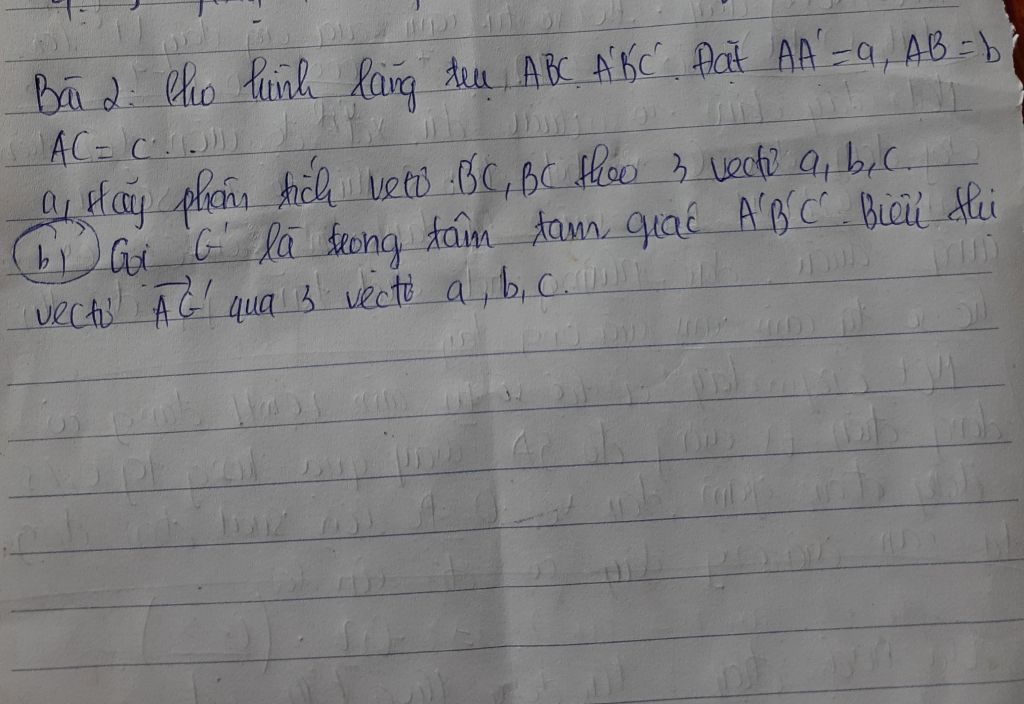 Bài 2: Cho hình lăng trụ ABC A'B'C'. Đặt AA' = a, AB = b
AC = c...
a, Hãy phân tích vectơ B'C, BC' theo 3 vectơ a, b, c.
b, Gọi G' là trọng tâm tam giác A'B'C'. Biểu thị
vectơ AG' qua 3 vectơ a, b, c.